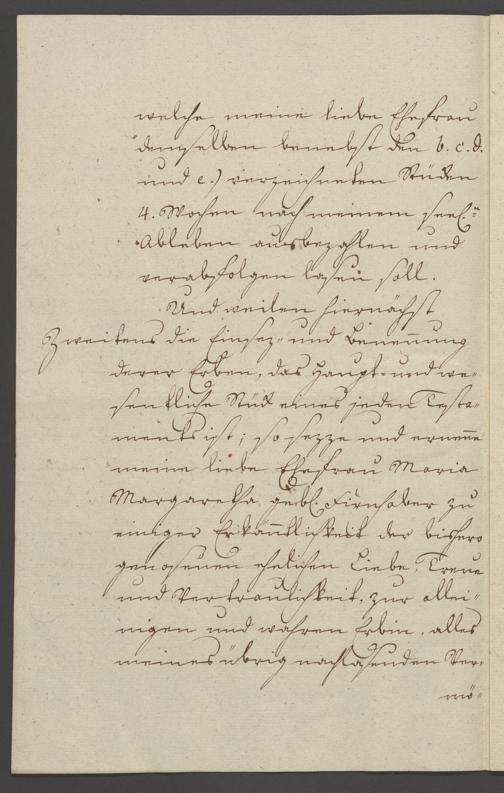 welche meine liebe Ehefrau
demselben benebst den b. c. d.
und e.) verzeichneten Stüken
4. Wochen nach meinem seel.
Ableben ausbezahlen und
verabfolgen lasen soll.
Und weilen hiernächst
Zweitens die Einsez- und Benennung
derer Erben, das Haupt- und we-
sentliche Stük eines jeden Testa-
ments ist; so sezze und ernenne
meine liebe Ehefrau Maria
Margaretha, gebl. Firnhaber zu
einiger Erkänntlichkeit der bishero
genosenen ehelichen Liebe, Treue
und Vertraulichkeit, zur allei-
nigen und wahren Erbin, alles
meines übrig nachlasenden Ver-
mö-